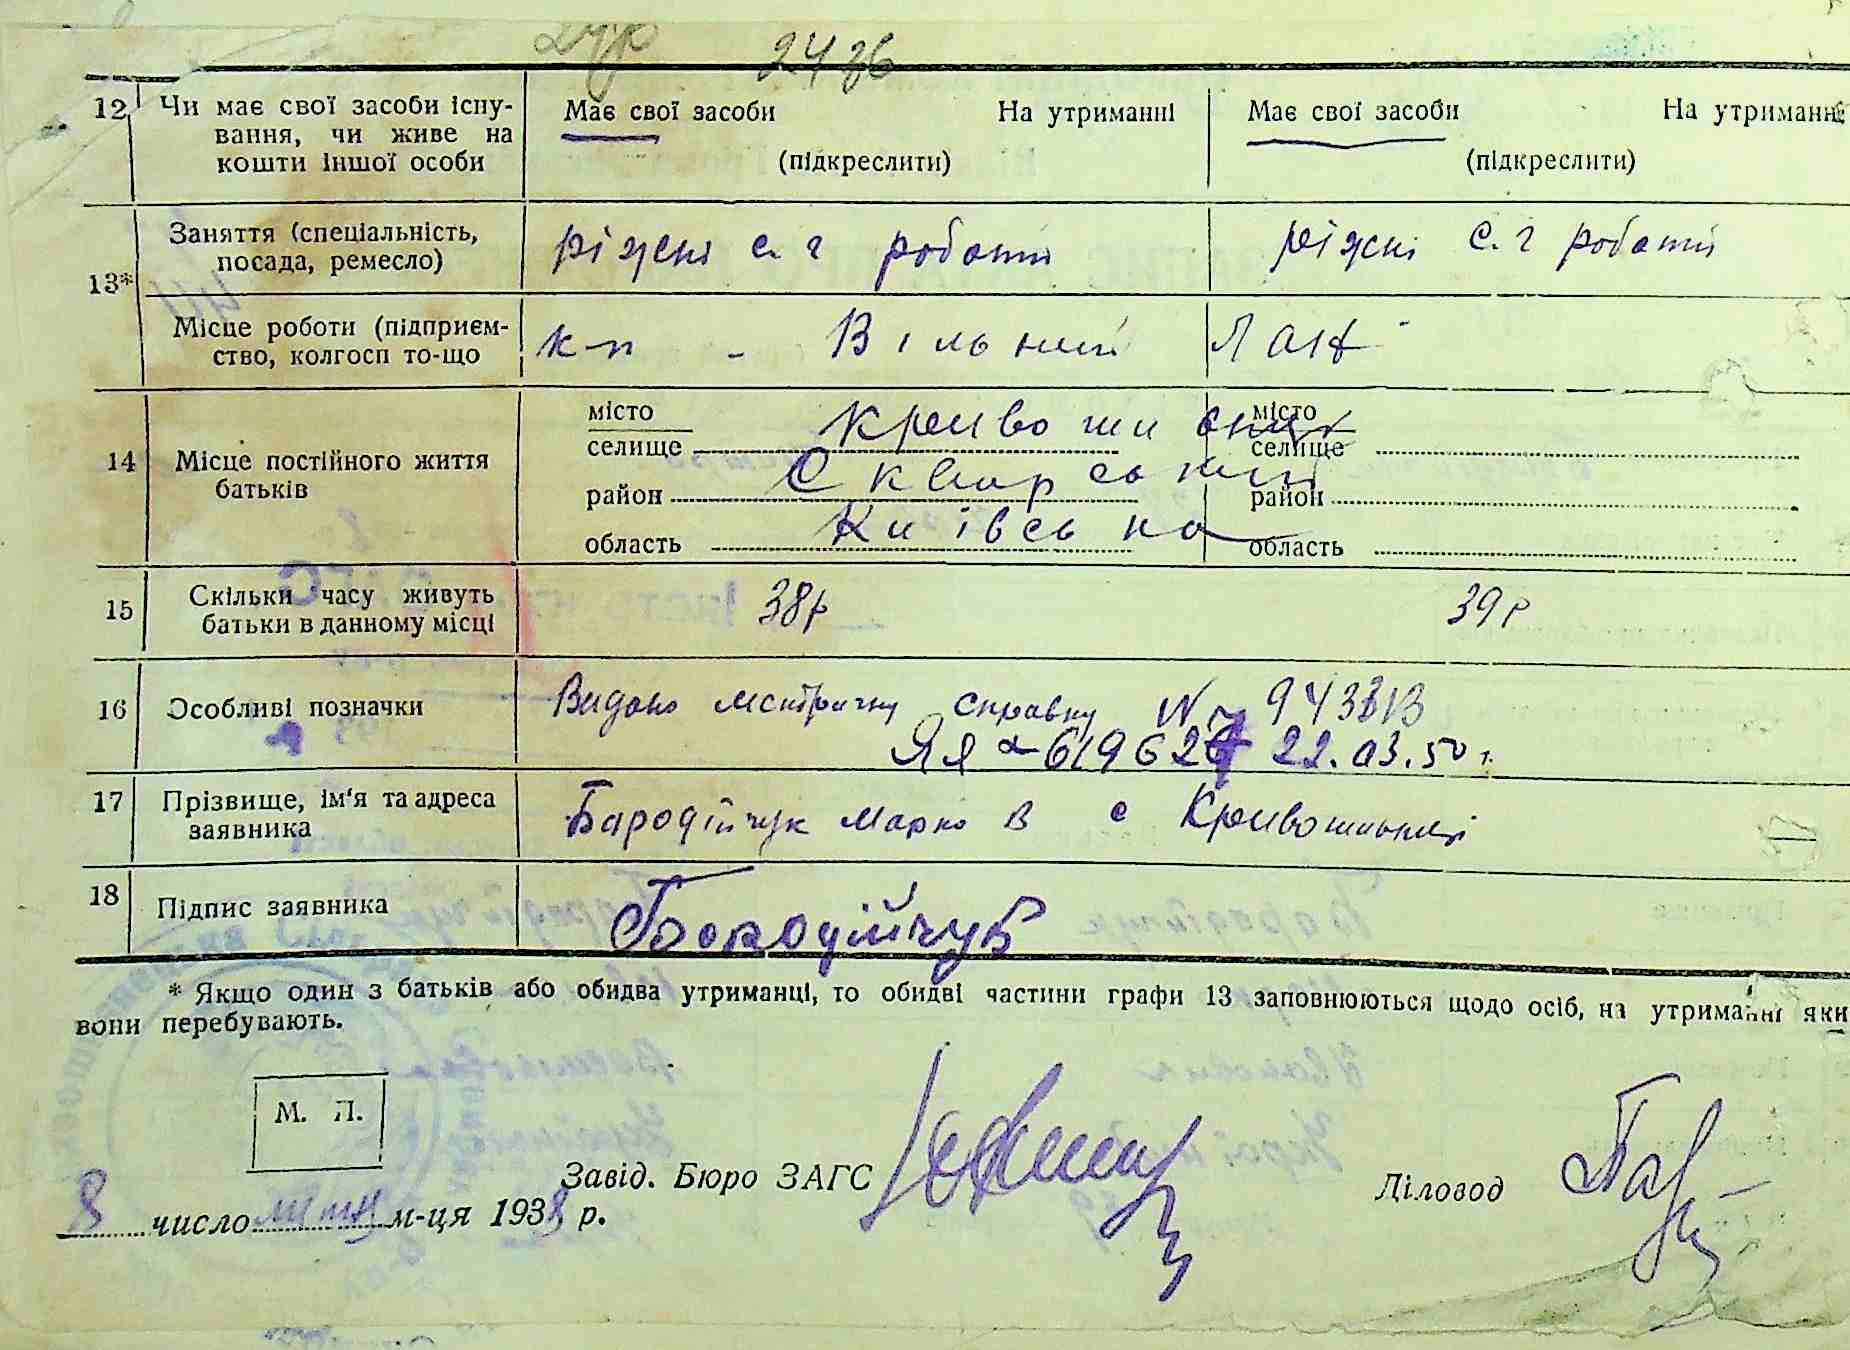 2436
12 Чи має свої засоби існу- Має свої засоби На утриманні Має свої засоби На утриманні
вання, чи живе на
кошти іншої особи (підкреслити) (підкреслити)
13* Заняття (спеціальність, ріжні с. г роботи ріжні с. г роботи
посада, ремесло)
Місце роботи (підприєм- к-п - Вільний Лан
ство, колгосп то-що
14 Місце постійного життя батьків
місто Кривошиїнці місто
селище селище
район Сквирський район
область Київська область
15 Скільки часу живуть 38р 39р
батьки в данному місці
16 Особливі позначки Видано метричну справку № 943313
ЯЯ 619627 22.03.50 г.
17 Прізвище, ім'я та адреса Бародійчук Марко в с Кривошиынці
заявника
18 Підпис заявника Бородійчук
* Якщо один з батьків або обидва утриманці, то обидві частини графи 13 заповнюються щодо осіб, на утриманні яки
вони перебувають.
М. П.
Завід. Бюро ЗАГС Діловод
8 число м-ця 1938 р.